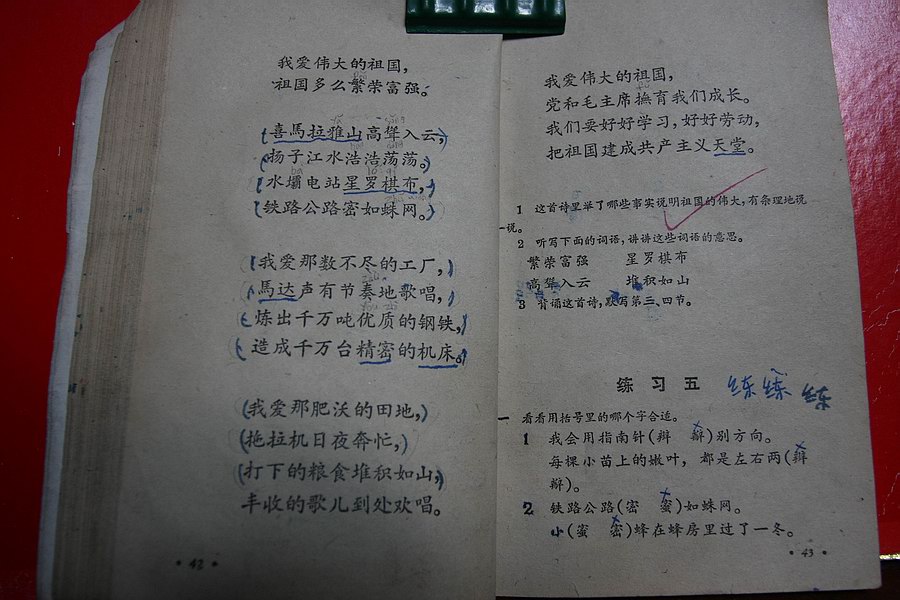 我爱伟大的祖国，
祖国多么繁荣富强。
喜馬拉雅山高耸入云，
扬子江水浩浩荡荡。
水壩电站星罗棋布，
铁路公路密如蛛网。
我爱那数不尽的工厂，
馬达声有节奏地歌唱，
炼出千万吨优质的钢铁，
造成千万台精密的机床。
我爱那肥沃的田地，
拖拉机日夜奔忙，
打下的粮食堆积如山，
丰收的歌儿到处欢唱。
• 42 •
我爱伟大的祖国，
党和毛主席撫育我们成长。
我们要好好学习，好好劳动，
把祖国建成共产主义天堂。
1 这首诗里举了哪些事实说明祖国的伟大，有条理地说
一说。
2 听写下面的词语，讲讲这些词语的意思。
繁荣富强 星罗棋布
高耸入云 堆积如山
3 背诵这首诗，默写第三、四节。
练习五 练 练 练
一 看看用括号里的哪个字合适。
1 我会用指南针(辨 辮)别方向。
每棵小苗上的嫩叶，都是左右两(辨
辮)。
2 铁路公路(密 蜜)如蛛网。
小(蜜 密)蜂在蜂房里过了一冬。
• 43 •